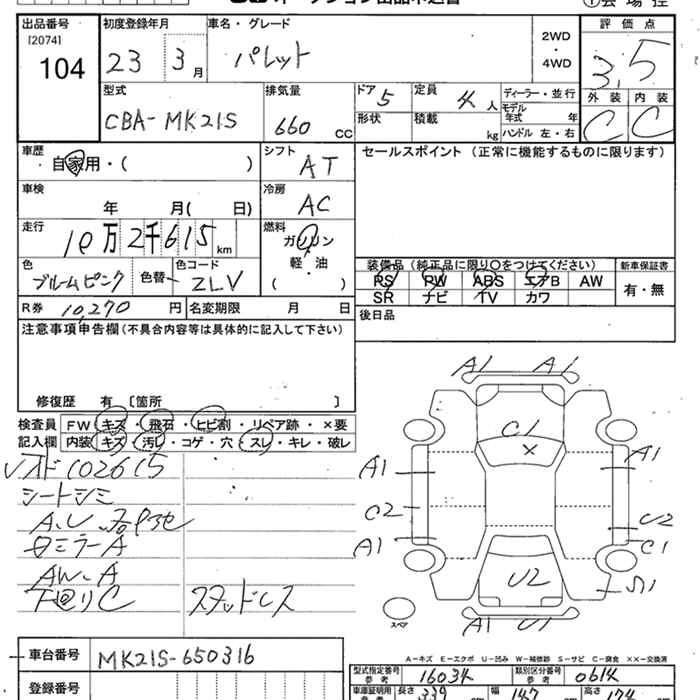 出品番号 初度登録年月 車名・グレード 評価点
[2074]
104 23 3月 パレット 2WD ・ 4WD 3.5
型式 排気量 ドア 5 定員 4人 ディーラー・並行 外装 内装
CBA-MK21S 660 cc 形状 積載 kg モデル年式 年 C C
ハンドル 左・右
車歴 自家用・( ) シフト AT セールスポイント (正常に機能するものに限ります)
車検 年 月( 日) 冷房 AC
走行 10万2千615 km 燃料 ガソリン・軽油 ( )
色 ブルームピンク 色替 色コード ZLV 装備品 (純正品に限り○をつけてください) 新車保証書
PS PW ABS エアB AW 有・無
SR ナビ TV カワ
R券 10,270 円 名変期限 月 日 後日品
注意事項申告欄(不具合内容等は具体的に記入して下さい)
修復歴 有 〔箇所 〕
検査員 FW キズ・飛石・ヒビ割・リペア跡・×要
記入欄 内装 キズ・汚レ・コゲ・穴・スレ・キレ・破レ
102615
シートシミ
ミラーA
AW.A
下回りC スタッドレス
A1 A1
C1
×
A1 A1
C2 U2
A1 C1
U2 S1
A1 U1
スペア
A－キズ E－エクボ U－凹み W－補修跡 S－サビ C－腐食 ××－交換済
車台番号 MK21S-650316
型式指定番号 参考 16034 類別区分番号 参考 0614
登録番号 車庫証明用 長さ 339 幅 147 高さ